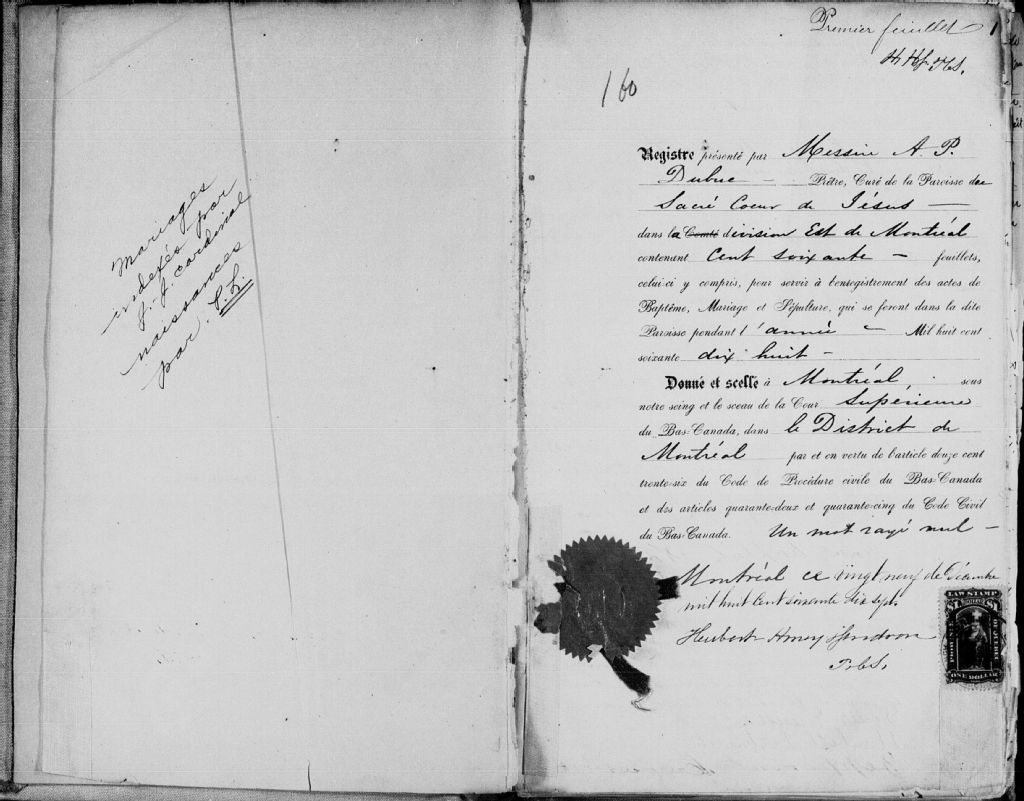 mariages
indexés par
J. J. Cardinal
naissances
par. P. L.
Premier feuillet 1
160
Registre présenté par Messire A. P.
Dubuc — Prêtre, Curé de la Paroisse du
Sacré Coeur de Jésus —
dans la Comté division Est de Montréal
contenant Cent soixante — feuillets,
celui-ci y compris, pour servir à l'enregistrement des actes de
Baptême, Mariage et Sépulture, qui se feront dans la dite
Paroisse pendant l'année — Mil huit cent
soixante dix huit —
Donné et scellé à Montréal, sous
notre seing et le sceau de la Cour Supérieure
du Bas-Canada, dans le District de
Montréal par et en vertu de l'article douze cent
trente-six du Code de Procédure civile du Bas-Canada
et des articles quarante-deux et quarante-cinq du Code Civil
du Bas-Canada. Un mot rayé nul —
Montréal ce vingt neuf de Décembre
mil huit cent soixante dix sept
Hubert
LAW STAMP
$1 $1
PROVINCE OF QUEBEC
ONE DOLLAR